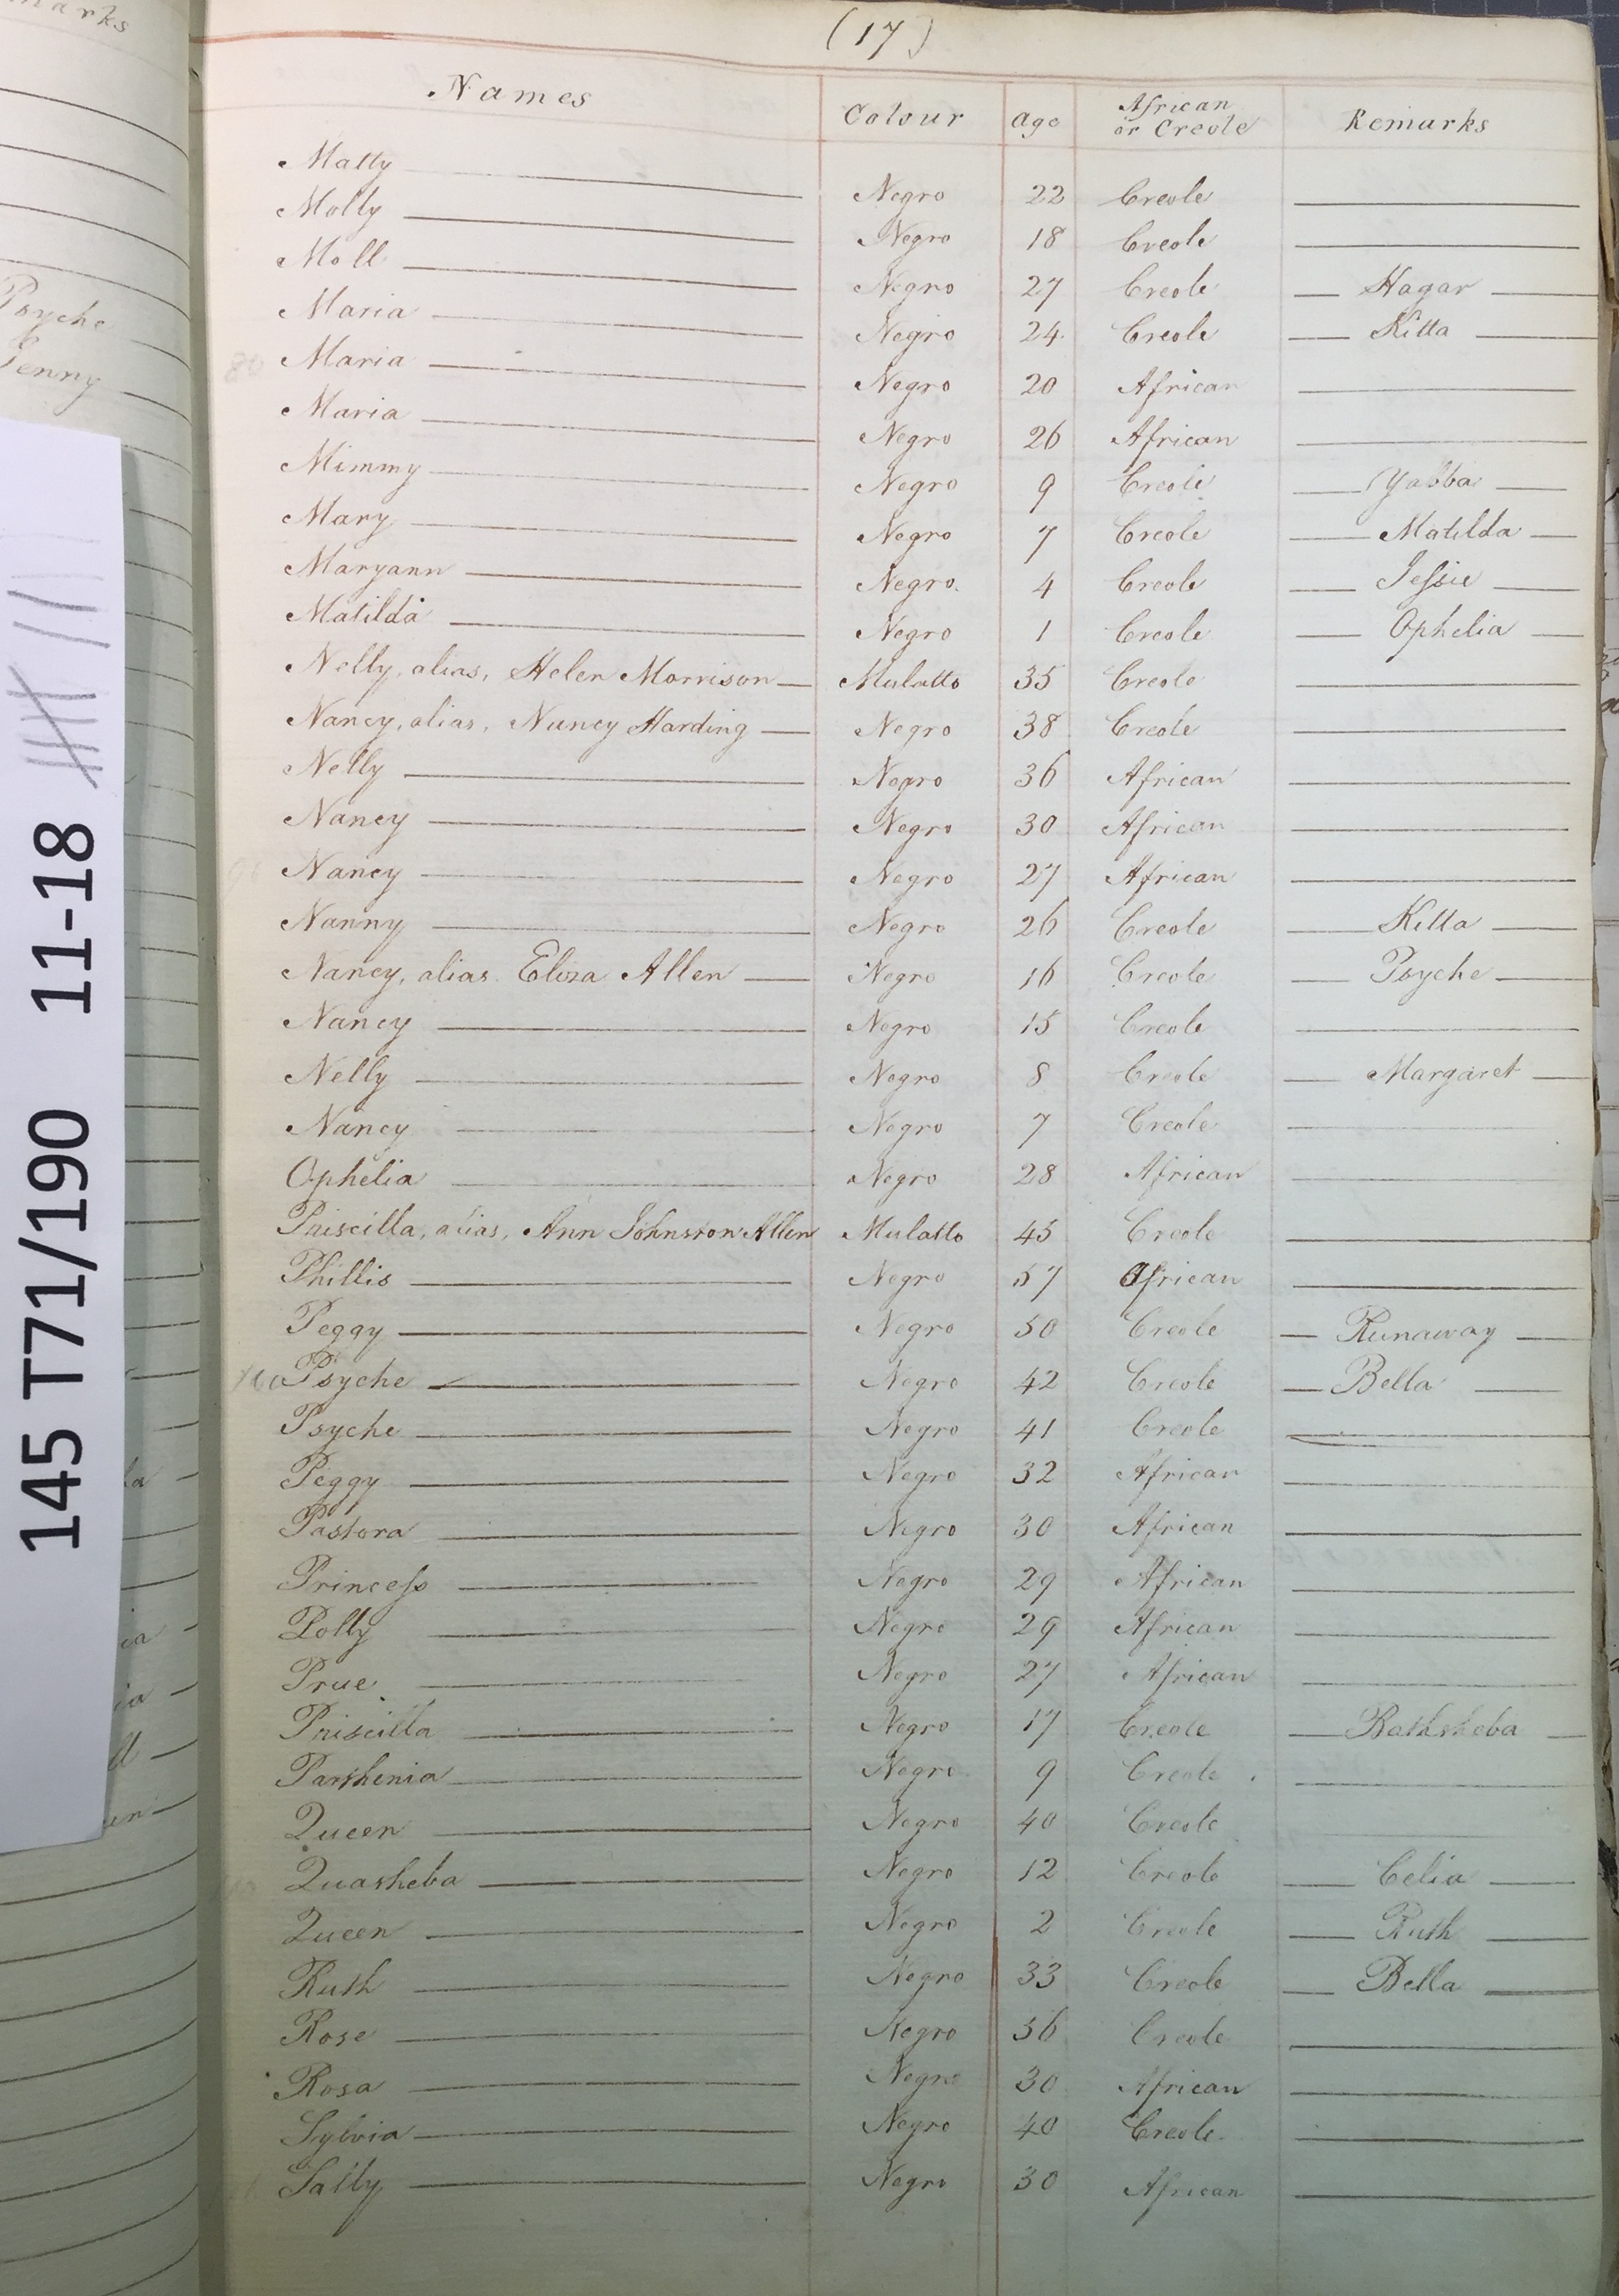 (17)
Names Colour Age African or Creole Remarks
Matty Negro 22 Creole
Molly Negro 18 Creole
Moll Negro 27 Creole Hagar
Maria Negro 24 Creole Kitta
80 Maria Negro 20 African
Maria Negro 26 African
Mimmy Negro 9 Creole Yabba
Mary Negro 7 Creole Matilda
Maryann Negro 4 Creole Jessie
Matilda Negro 1 Creole Ophelia
Nelly, alias, Helen Morrison Mulatto 35 Creole
Nancy, alias, Nancy Harding Negro 38 Creole
Nelly Negro 36 African
Nancy Negro 30 African
90 Nancy Negro 27 African
Nanny Negro 26 Creole Kitta
Nancy, alias. Eliza Allen Negro 16 Creole Psyche
Nancy Negro 15 Creole
Nelly Negro 8 Creole Margaret
Nancy Negro 7 Creole
Ophelia Negro 28 African
Priscilla, alias, Ann Johnston Allen Mulatto 45 Creole
Phillis Negro 57 African
Peggy Negro 50 Creole Runaway
100 Psyche Negro 42 Creole Bella
Psyche Negro 41 Creole
Peggy Negro 32 African
Pastora Negro 30 African
Princess Negro 29 African
Polly Negro 29 African
Prue Negro 27 African
Priscilla Negro 17 Creole Bathsheba
Parthenia Negro 9 Creole
Queen Negro 40 Creole
Quasheba Negro 12 Creole Celia
Queen Negro 2 Creole Ruth
Ruth Negro 33 Creole Bella
Rose Negro 36 Creole
Rosa Negro 30 African
Sylvia Negro 40 Creole
Sally Negro 30 African
marks
Psyche
Jenny
145 T71/190 11-18